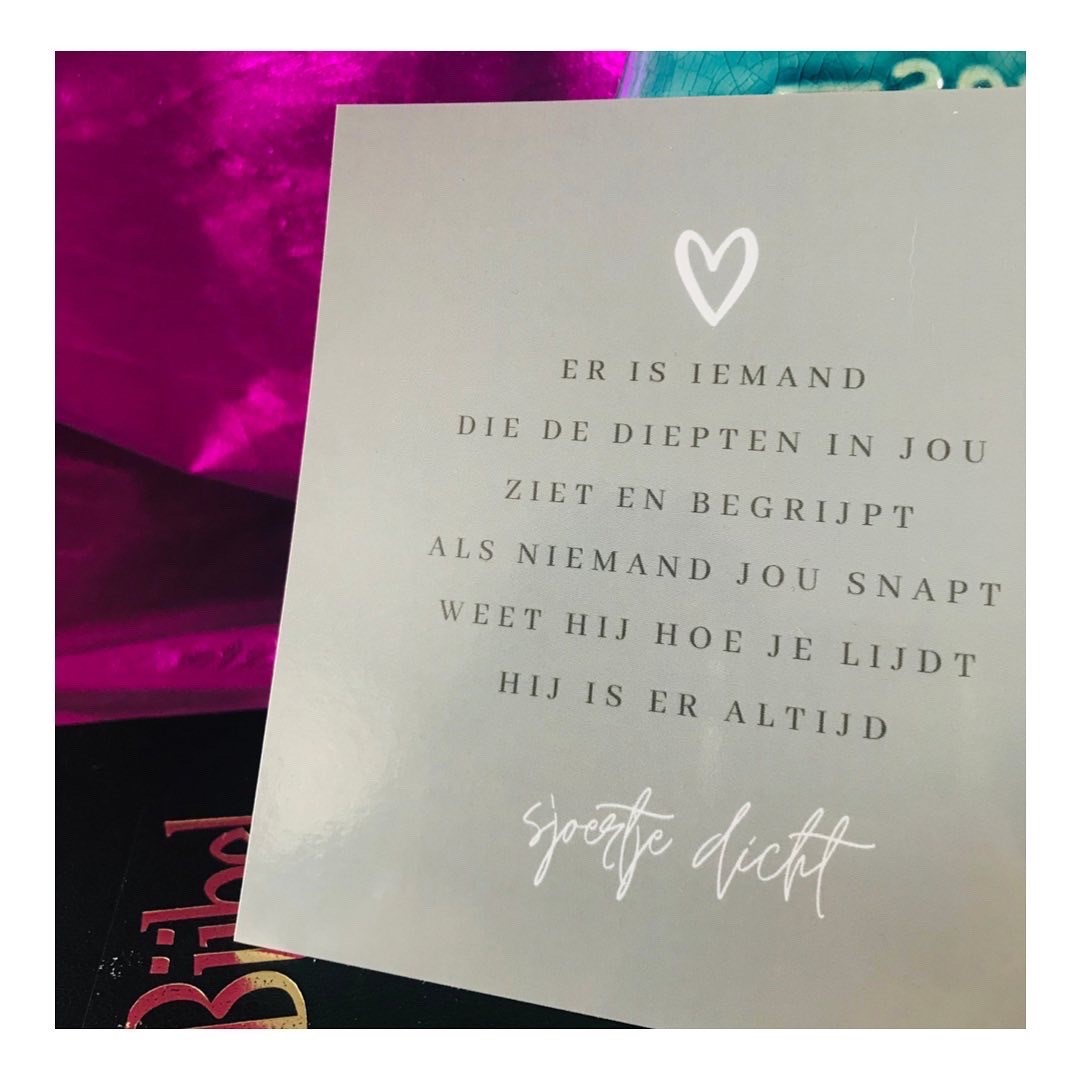 ER IS IEMAND
DIE DE DIEPTEN IN JOU
ZIET EN BEGRIJPT
ALS NIEMAND JOU SNAPT
WEET HIJ HOE JE LIJDT
HIJ IS ER ALTIJD
sjoertje dicht
Bijbel